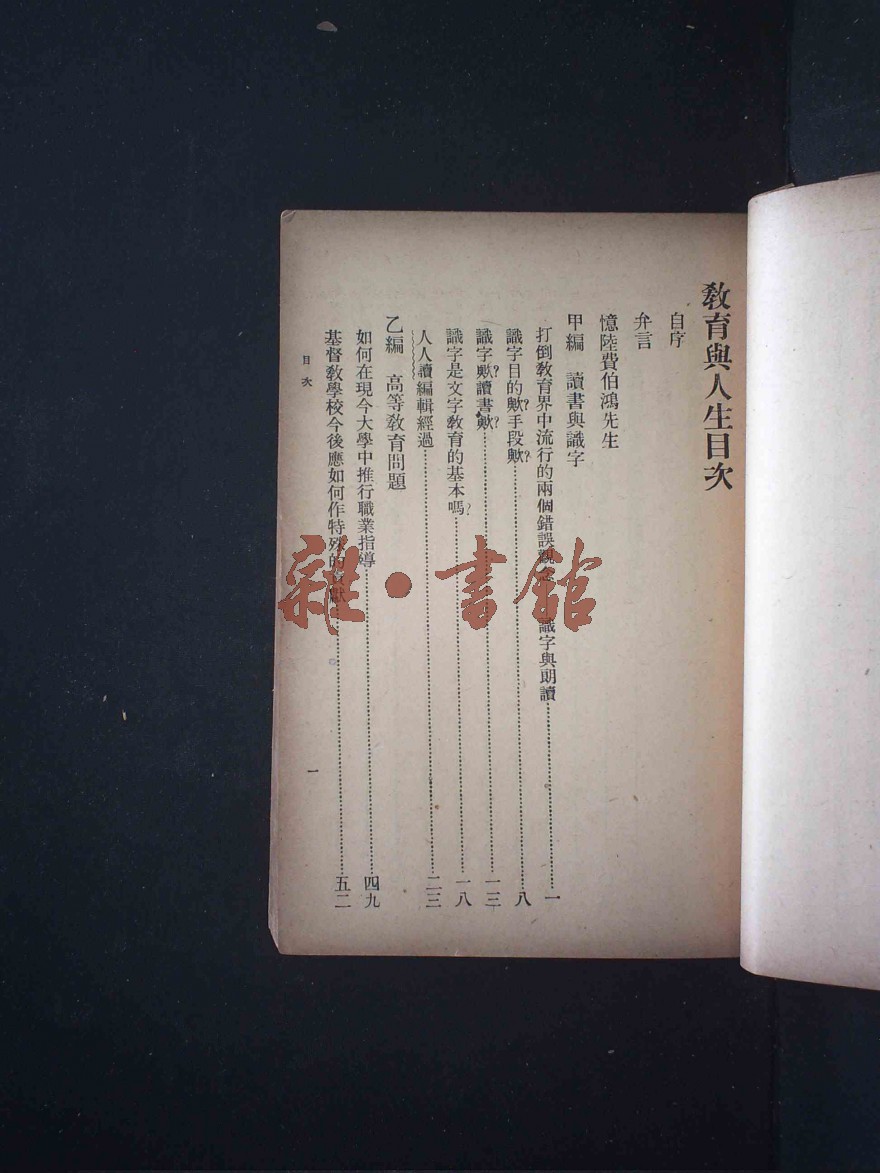 教育與人生目次
自序
弁言
憶陸費伯鴻先生
甲編　讀書與識字
打倒教育界中流行的兩個錯誤觀　識字與朗讀……一
識字目的歟？手段歟？……八
識字歟？讀書歟？……一三
識字是文字教育的基本嗎？……一八
人人讀編輯經過……二三
乙編　高等教育問題
如何在現今大學中推行職業指導……四九
基督教學校今後應如何作特殊的貢獻……五二
目次
一
雜·書館